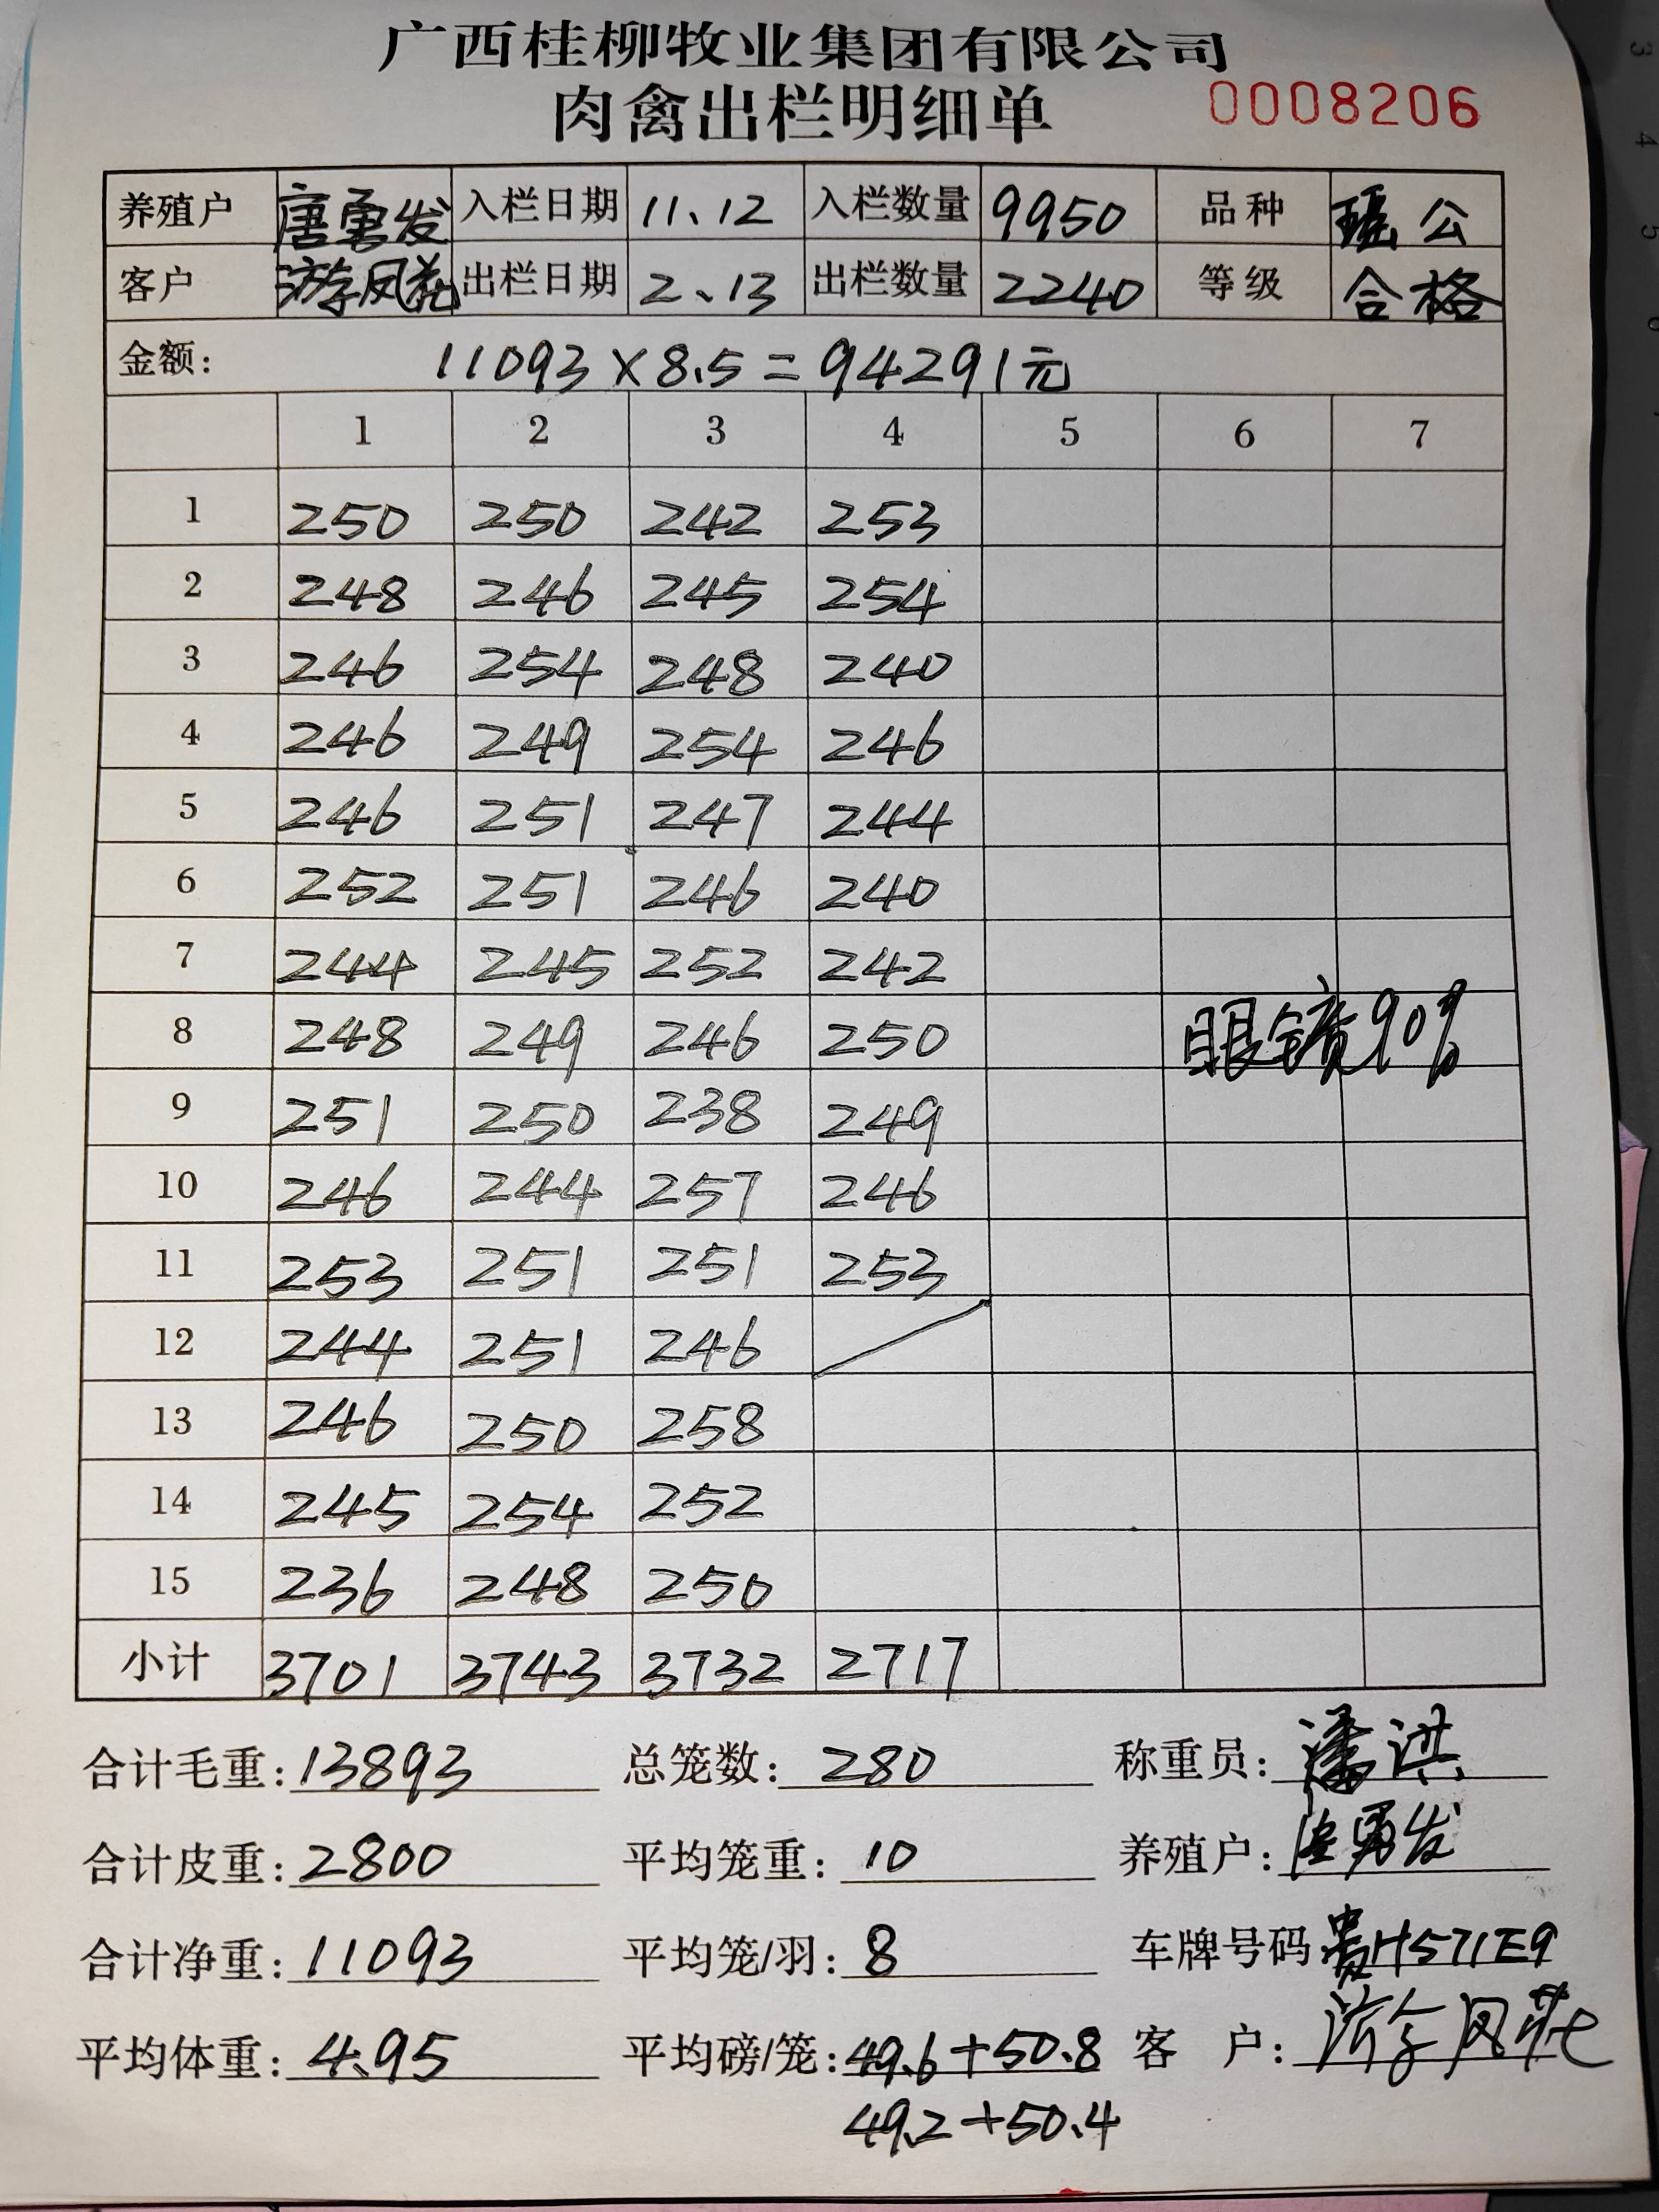 广西桂柳牧业集团有限公司
肉禽出栏明细单 0008206
养殖户 唐勇发 入栏日期 11、12 入栏数量 9950 品种 瑶公
客户 游学凤花 出栏日期 2、13 出栏数量 2240 等级 合格
金额: 11093×8.5=94291元
1 2 3 4 5 6 7
1 250 250 242 253
2 248 246 245 254
3 246 254 248 240
4 246 249 254 246
5 246 251 247 244
6 252 251 246 240
7 244 245 252 242
8 248 249 246 250 眼镜90%
9 251 250 238 249
10 246 244 257 246
11 253 251 251 253
12 244 251 246
13 246 250 258
14 245 254 252
15 236 248 250
小计 3701 3743 3732 2717
合计毛重:13893 总笼数:280 称重员:潘洪
合计皮重:2800 平均笼重:10 养殖户:唐勇发
合计净重:11093 平均笼/羽:8 车牌号码 贵H571E9
平均体重:4.95 平均磅/笼:49.6+50.8 客户:
49.2+50.4